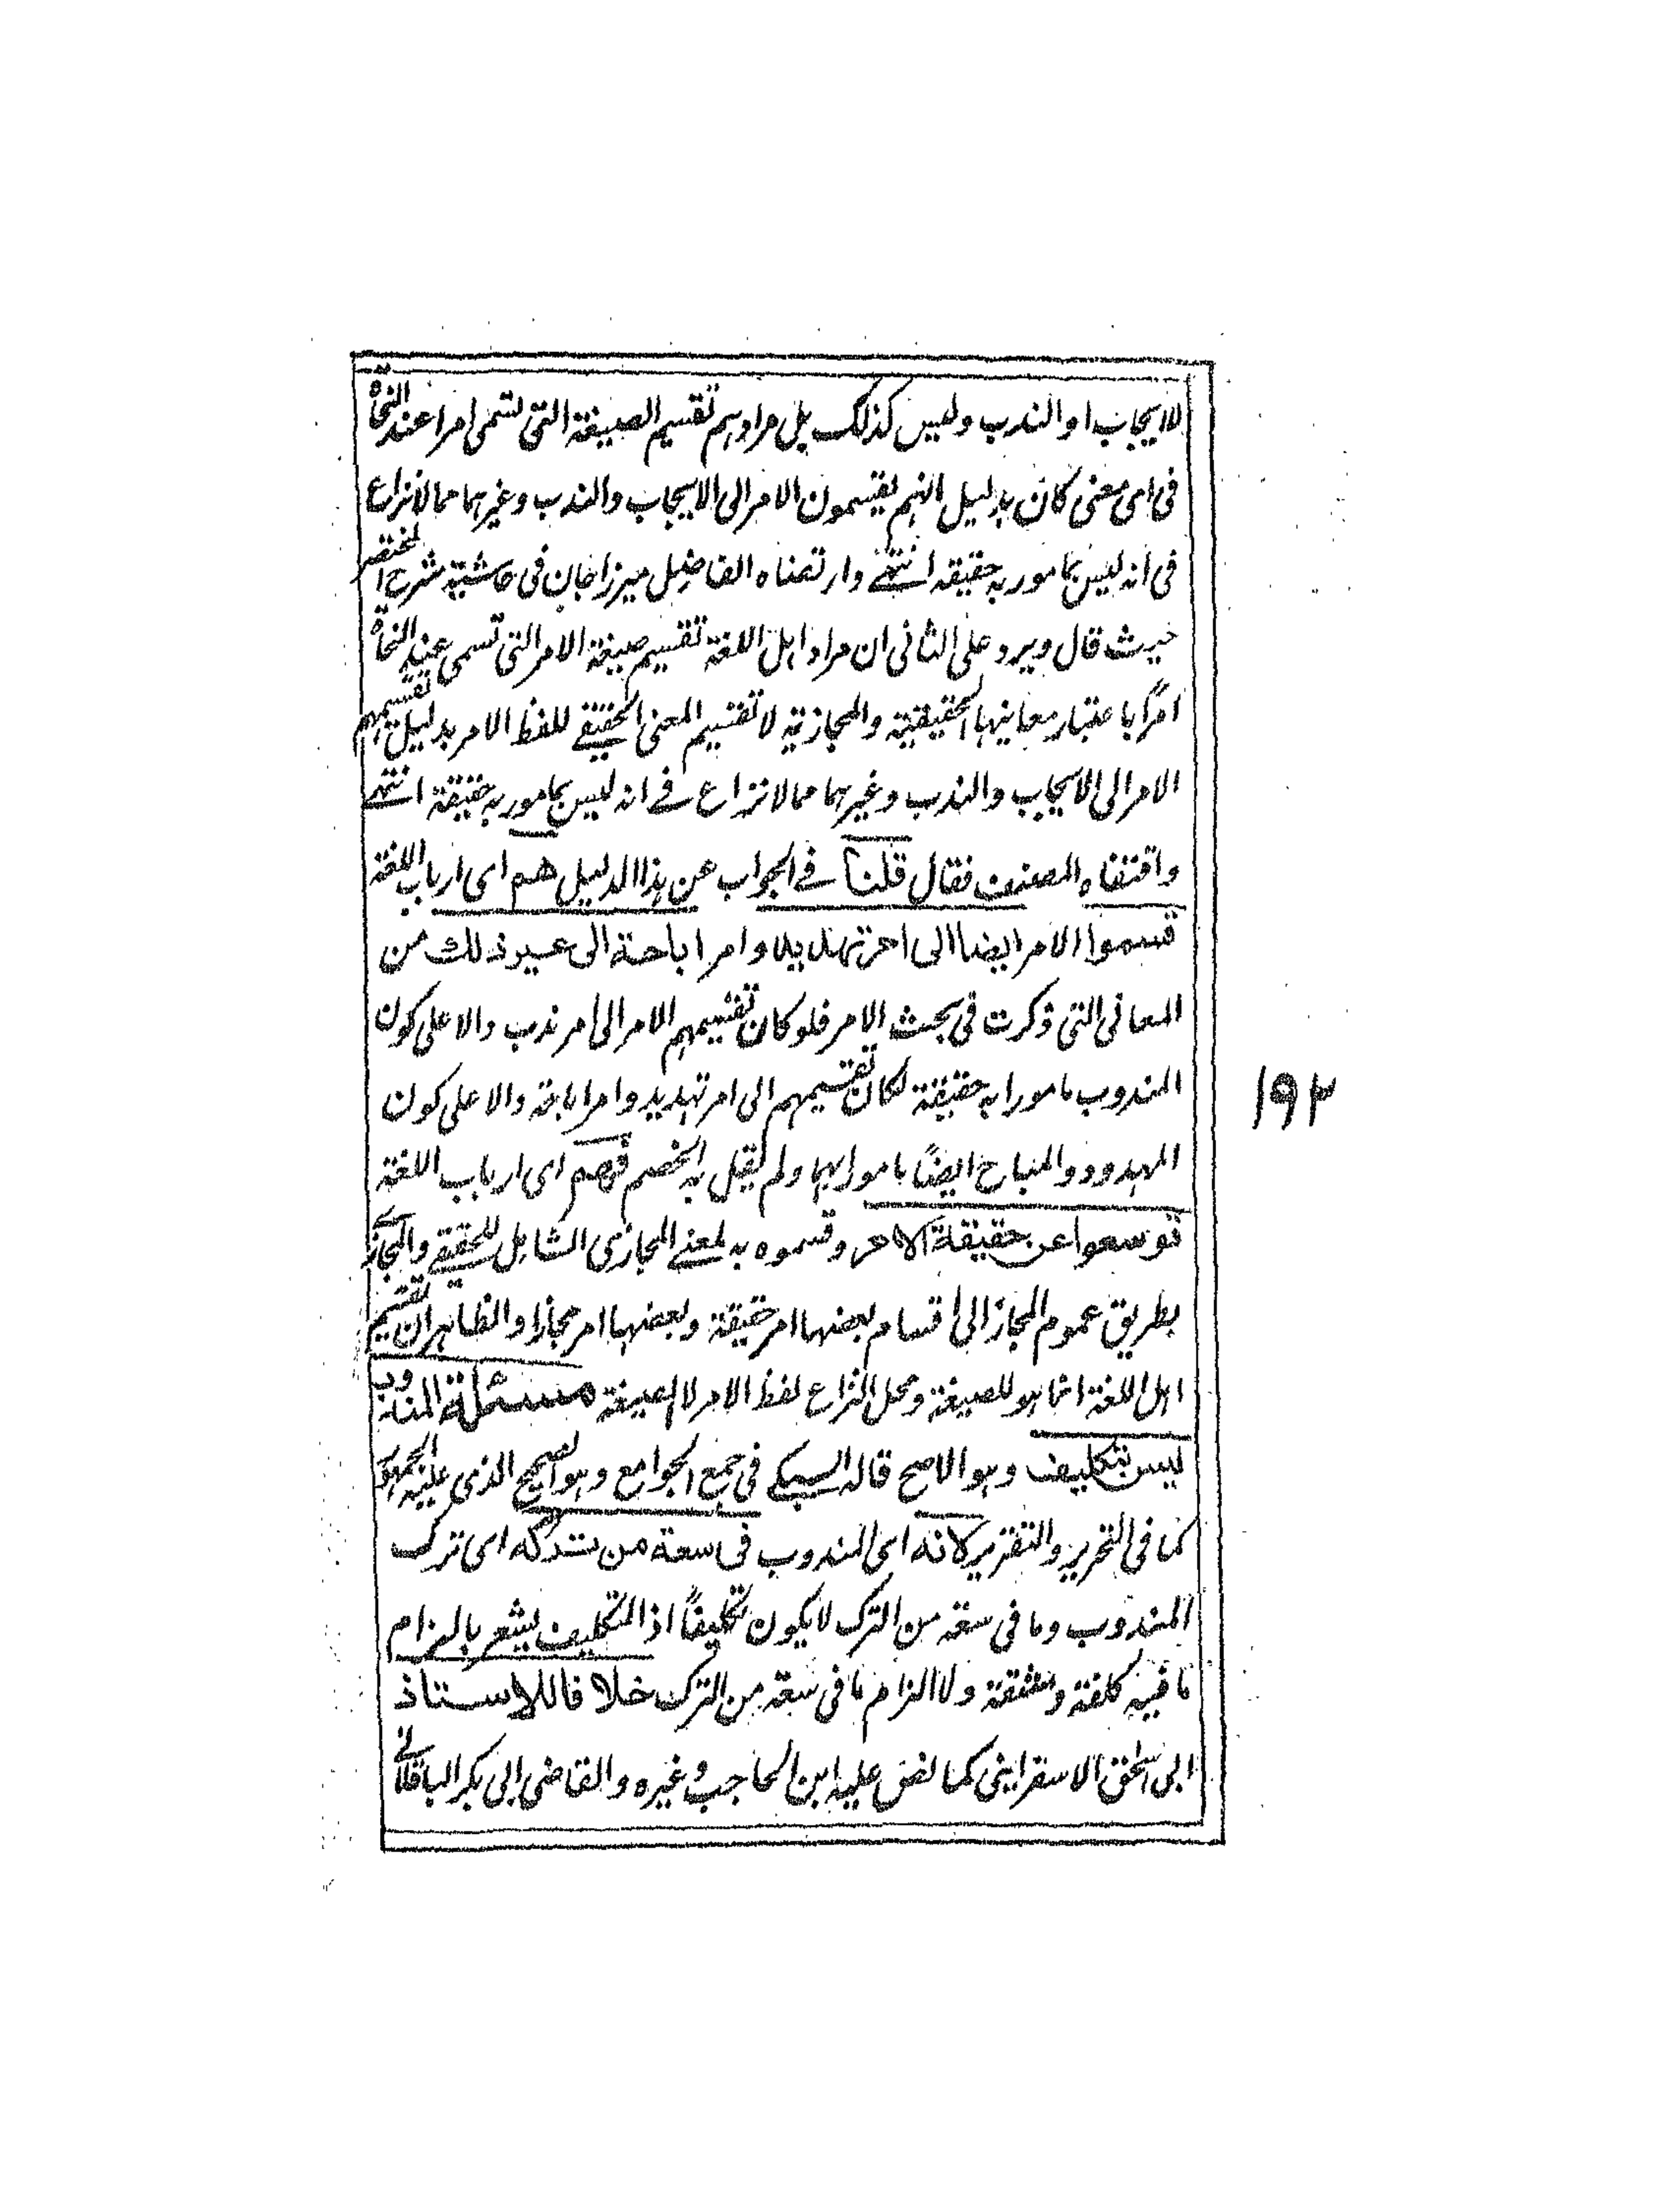 لاايجاب او الندب وليس كذلك بل مرادهم تقسيم الصيغة التى تسمى امرا عند النحاة
فى اى معنى كان بدليل انهم يقسمون الامر الى الايجاب والندب وغيرهما مما لا نزاع
فى انه ليس بمامور به حقيقه انتهى وارتضاه الفاضل ميرزاجان فى حاشية شرح المختصر
حيث قال ويرد على الثانى ان مراد اهل اللغة تقسيم صيغة الامر التى تسمى عند النحاة
امرًا باعتبار معانيها الحقيقية والمجازية لا تقسيم المعنى الحقيقى للفظ الامر بدليل تقسيمهم
الامر الى الايجاب والندب وغيرهما مما لا نزاع فى انه ليس بمامور به حقيقة انتهى
واقتفاه المصنف فقال قلنا فى الجواب عن هذا الدليل هم اى ارباب اللغة
قسموا الامر ايضا الى امر تهديد او امر اباحة الى غير ذلك من
المعانى التى ذكرت فى بحث الامر فلو كان تقسيمهم الامر الى امر ندب دالا على كون
المندوب مامورا به حقيقة لكان تقسيمهم الى امر تهديد وامر اباحة دالا على كون
المهدد والمباح ايضًا مامورا بهما ولم يقل به الخصم فهم اى ارباب اللغة
توسعوا عن حقيقة الامر وقسموه بالمعنى المجازى الشامل للحقيقى والمجازى
بطريق عموم المجاز الى اقسام بعضها امر حقيقة وبعضها امر مجازا والظاهر ان تقسيم
اهل اللغة انما هو للصيغة ومحل النزاع لفظ الامر لا الصيغة مسئلة المندوب
ليس بتكليف وهو الاصح قاله السبكى فى جمع الجوامع وهو الصحيح الذى عليه الجمهور
كما فى التحرير والتقرير لانه اى المندوب فى سعة من تركه اى ترك
المندوب وما فى سعة من الترك لا يكون تكليفًا اذ التكليف يشعر بالزام
ما فيه كلفة ومشقة ولا الزام ما فى سعة من الترك خلافا للاستاذ
ابى اسحٰق الاسفراينى كما نص عليه ابن الحاجب وغيره والقاضى ابى بكر الباقلانى
١٩٢